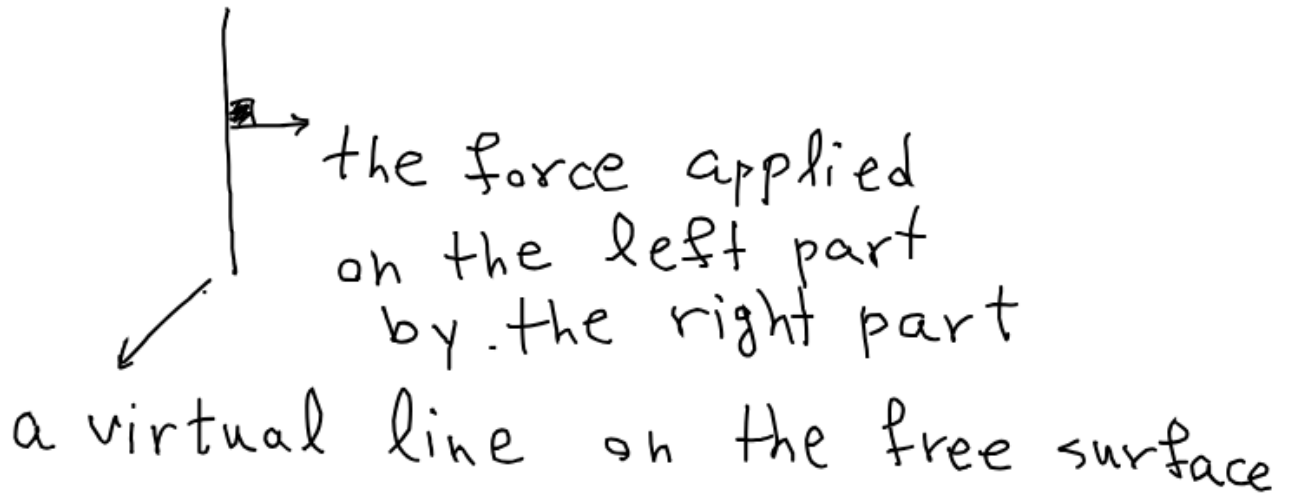 the force applied
on the left part
by the right part
a virtual line on the free surface